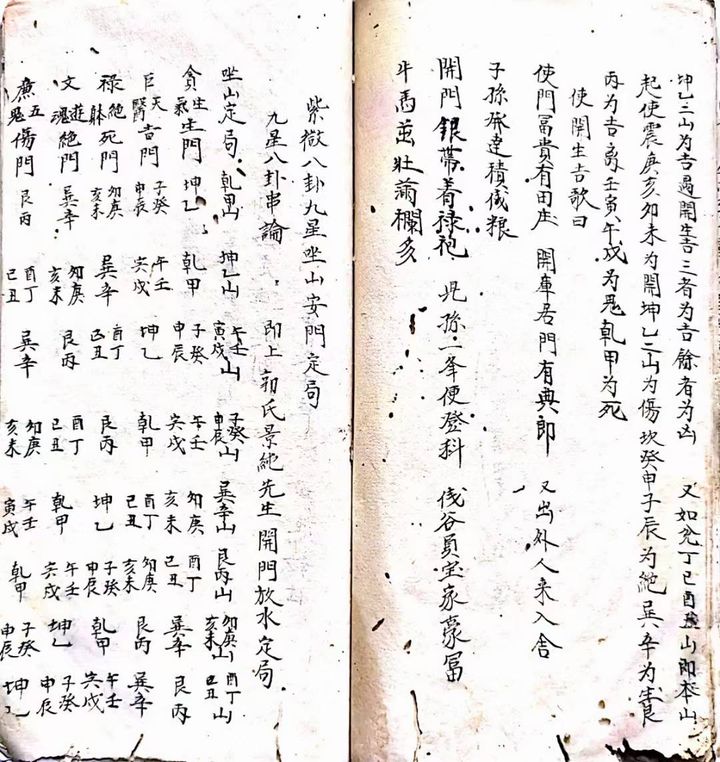 坤乙三山为吉遇開生吉三者为吉餘者为凶 又如兑丁己酉丑山即本山
起使震庚亥卯未为開坤乙二山为傷坎癸申子辰为絶巽辛为生艮
丙为吉离壬寅午戌为鬼乾甲为死
使開生吉歌曰
使門冨貴有田庄 開車居門有典郎 又出外人来入舍
子孫發達積伩粮
開門銀帶着禄袍 児孫一举便登科 伩谷員宝家豪冨
牛馬並壮满欄多
紫微八卦九星坐山安門定局
九星八卦串論 即上郭氏景純先生開門放水定局
坐山定局 乾甲山 坤乙山 午壬寅戌山 子癸申辰山 巽辛山 艮丙山 卯庚亥未山 酉丁己丑山
贪生氣生門 坤乙 乾甲 子癸申辰 午壬寅戌 卯庚亥未 酉丁己丑 巽辛 艮丙
巨天醫吉門 子癸申辰 午壬寅戌 坤乙 乾甲 酉丁己丑 卯庚亥未 艮丙 巽辛
禄絶躰死門 卯庚亥未 巽辛 酉丁己丑 艮丙 坤乙 子癸申辰 乾甲 午壬寅戌
文遊魂絶門 巽辛 卯庚亥未 艮丙 酉丁己丑 乾甲 午壬寅戌 坤乙 子癸申辰
廉五鬼傷門 艮丙 酉丁己丑 巽辛 卯庚亥未 午壬寅戌 乾甲 子癸申辰 坤乙